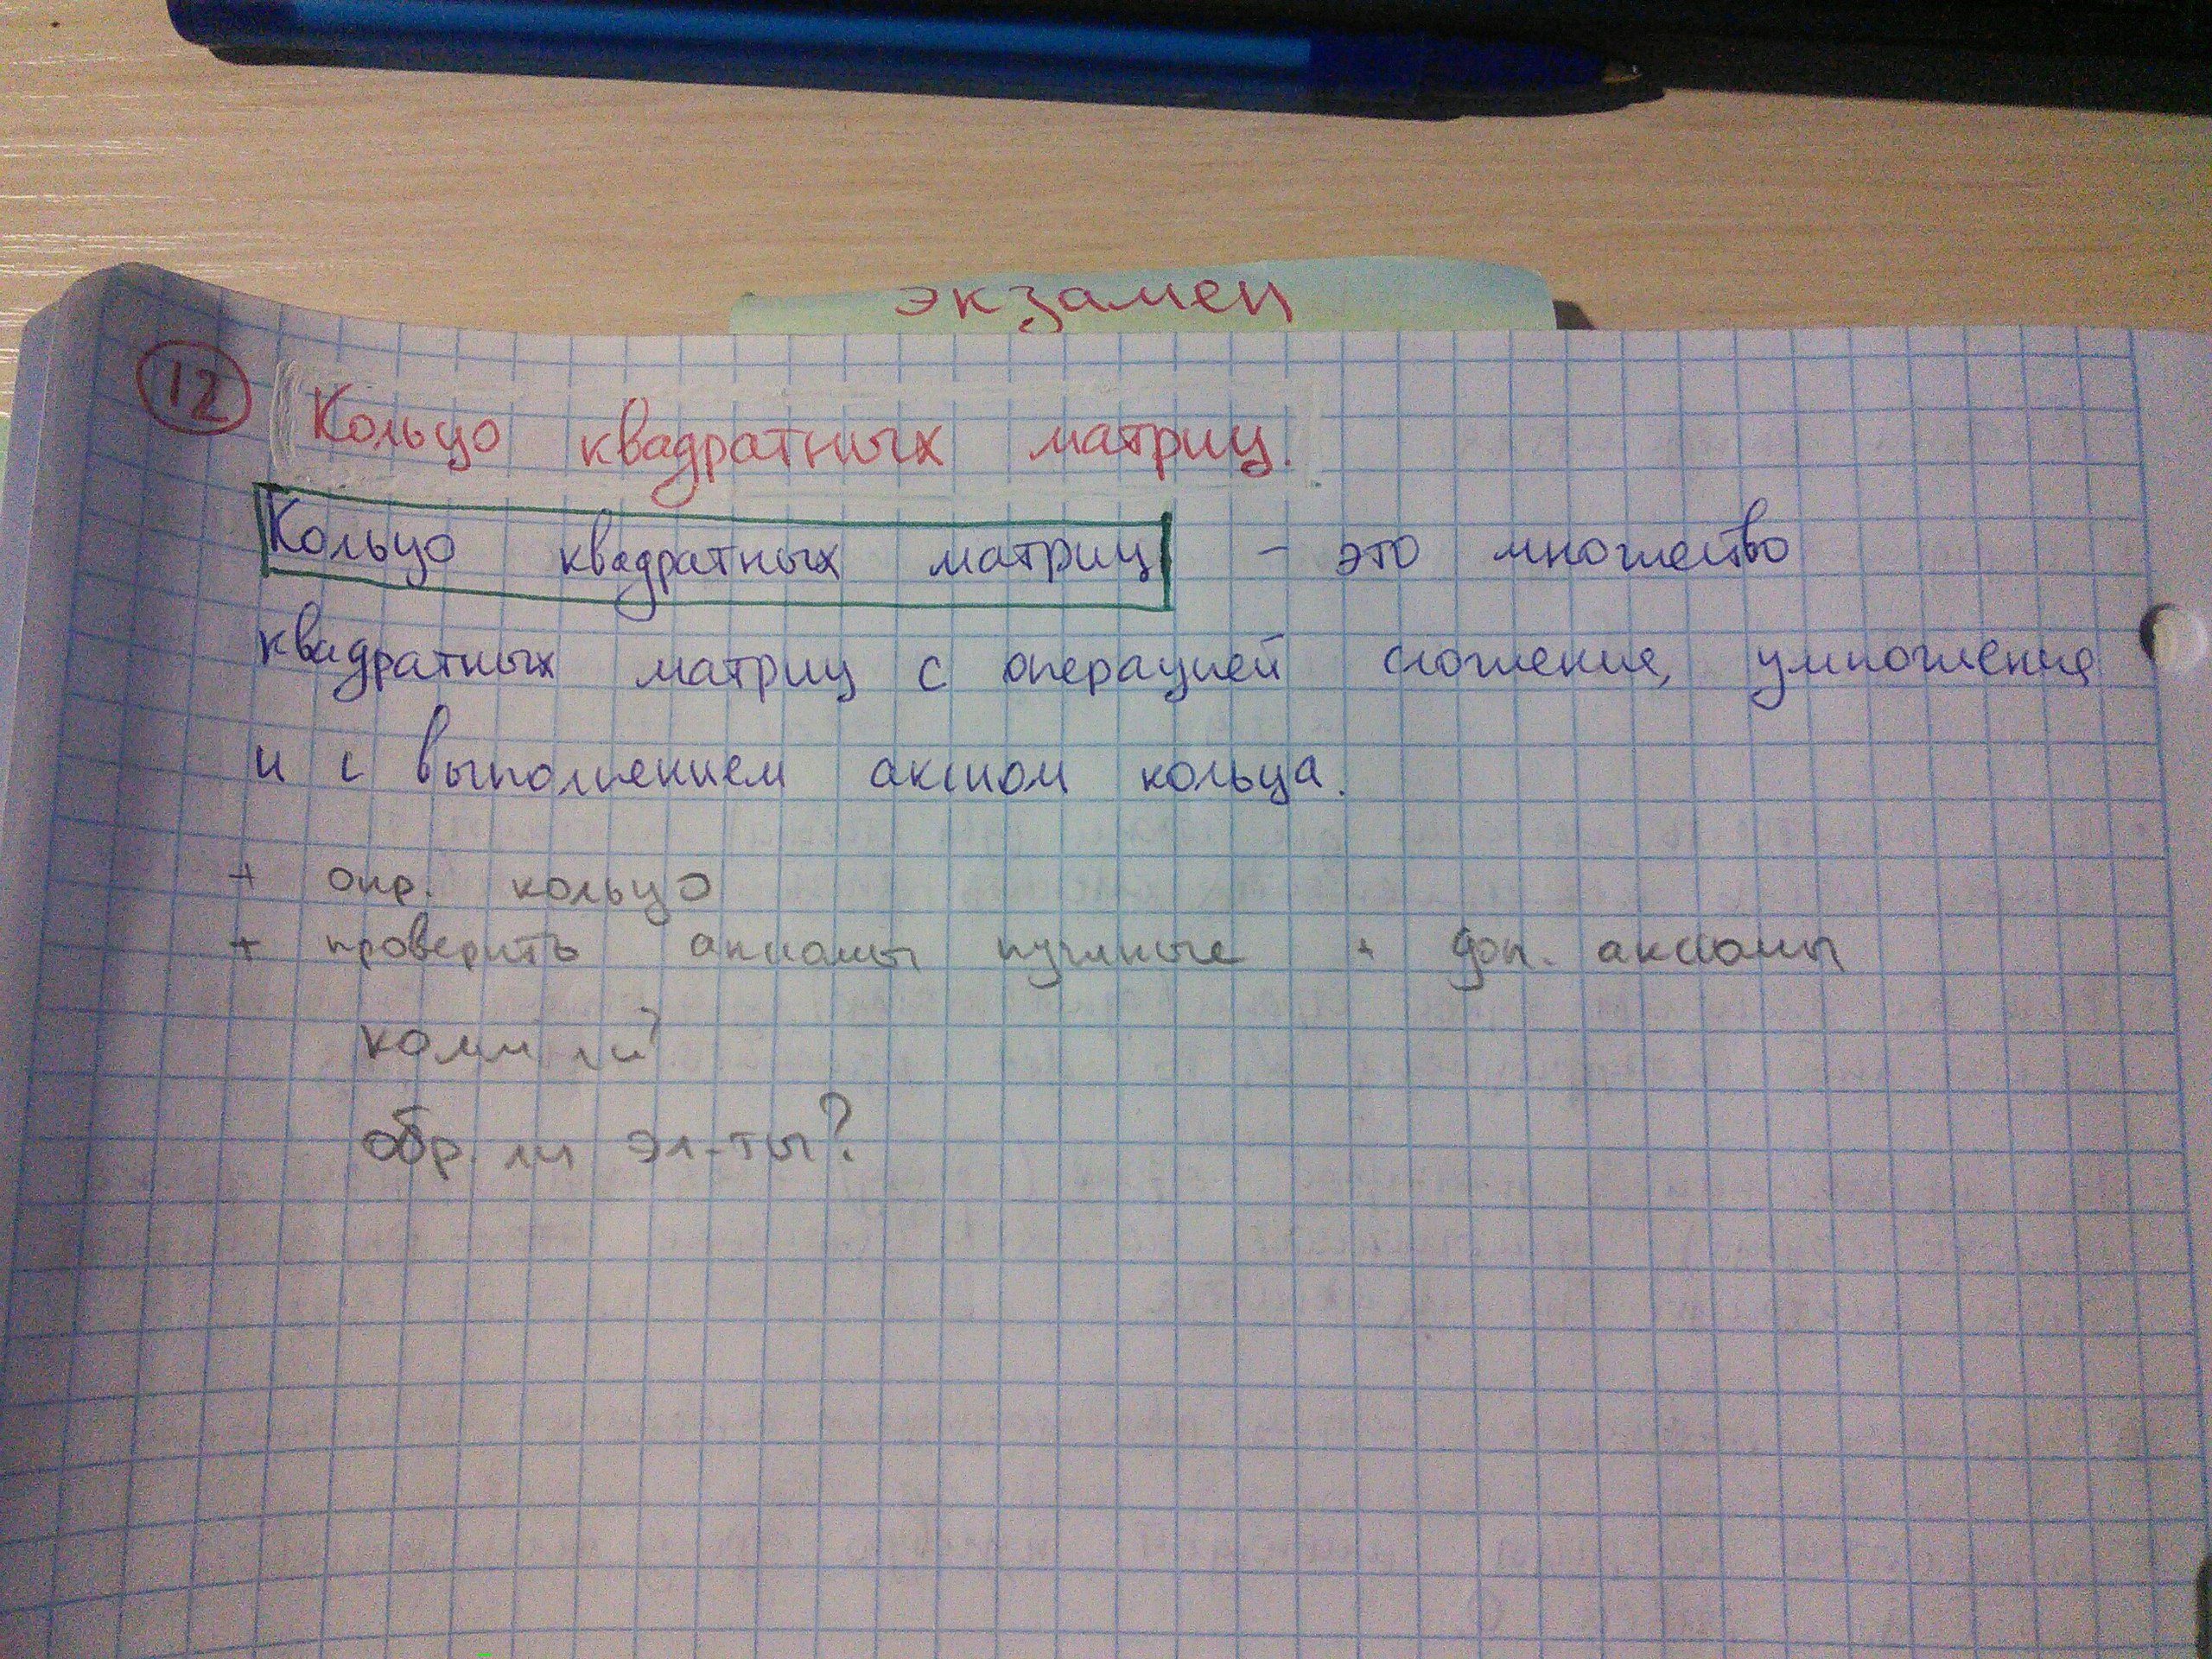 экзамен
12 Кольцо квадратных матриц.
Кольцо квадратных матриц - это множество
квадратных матриц с операцией сложения, умножения
и с выполнением аксиом кольца.
+ опр. кольцо
+ проверить аксиомы нужные + доп. аксиомы
комм ли?
обр. ли эл-ты?